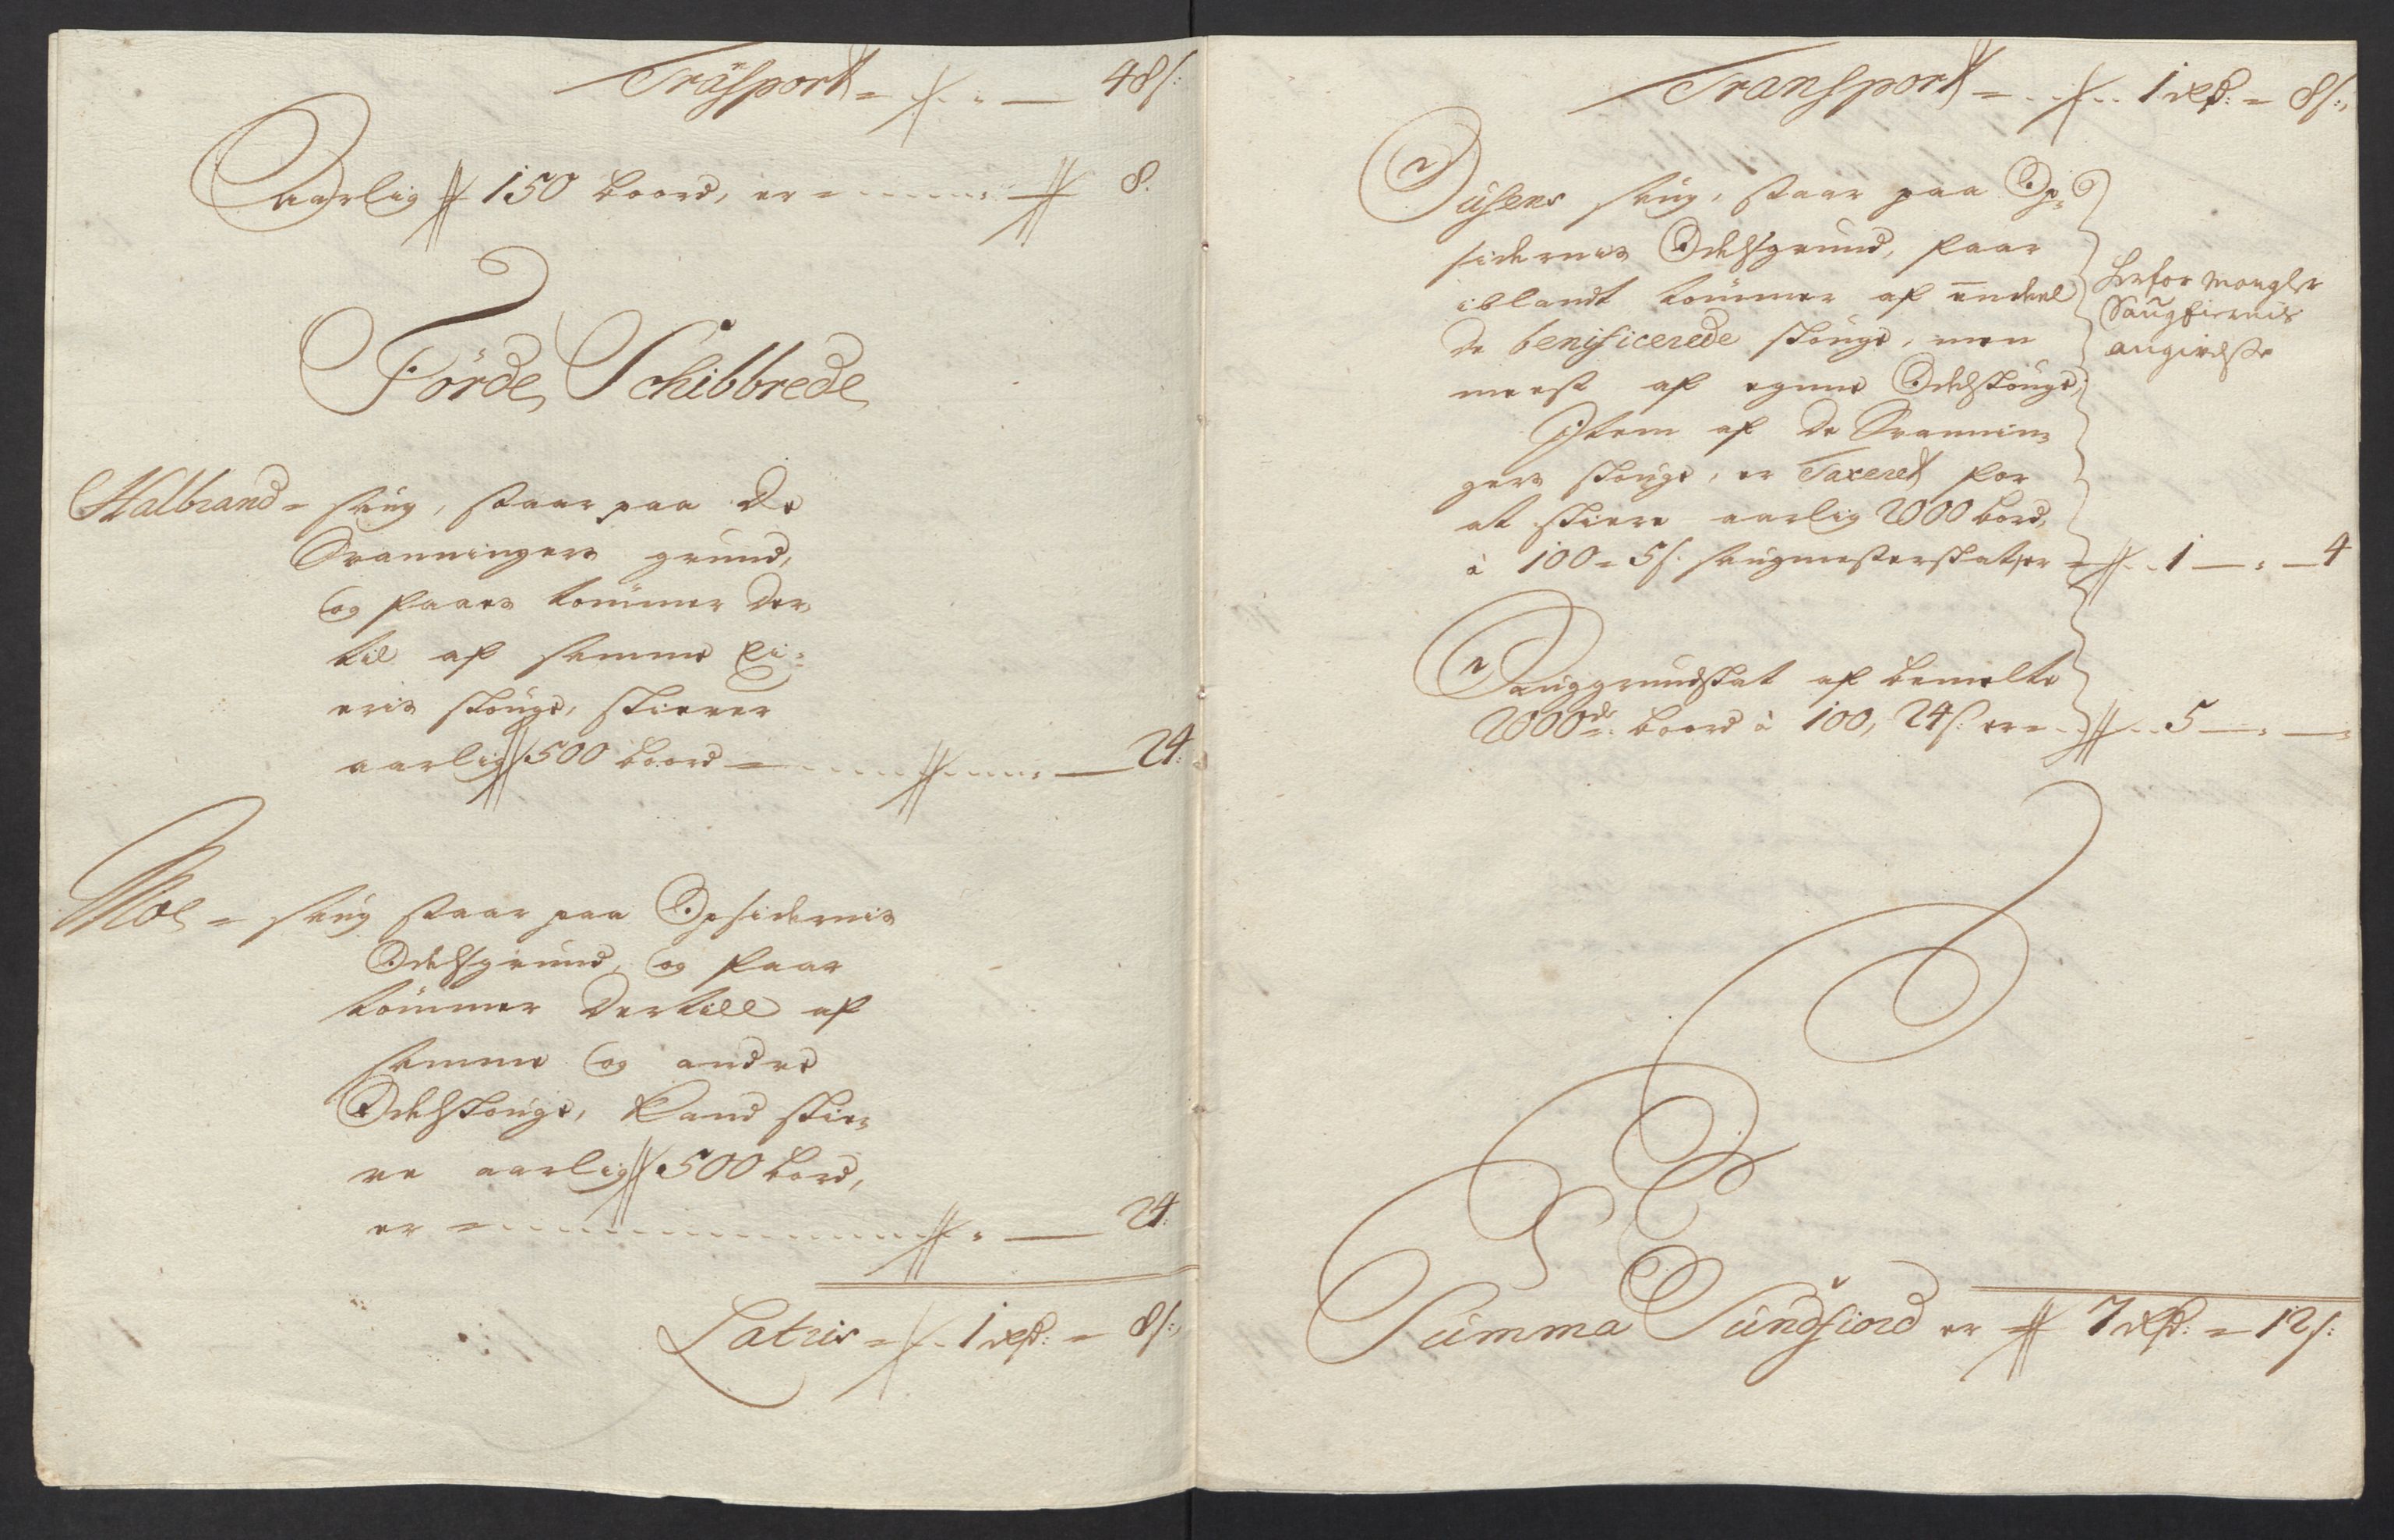 Transport - 48 s:
Aarlig 150 boord, er - 8.
Förde Schibbrede
Halbrand - saug, staar paa de
Svanningers grund,
og faaes tømmer der
til af samme Ei-
eris skouge, skierer
aarlig 500 boord - 24:
Moe - saug staar paa Opsidernis
Odelsgrund, og faar
tømmer dertill af
samme og andre
Odelskouge, kand skie-
re aarlig 500 bord,
er - 24:
Lateris - 1 rd: - 8 s:
Transport - 1 rd: - 8 s:
Øusens saug, staar paa Op-
sidernes Odelsgrund, faar
iblandt tømmer af endeel
de benificerede skouge, men
meest af egene Odelskouge,
Item af de Svannin-
gers skouge, er Taxeret for
at skiere aarlig 2000 bord,
à 100 - 5 s: saugmesterskat, er - 1 - 4
Herfor mangler
Saugeiernis
angivelse
Sauggrundskat af bemelte
2000de boord à 100, 24 s: er - 5 -
Summa Sundfiord er 7 rd: - 12 s: